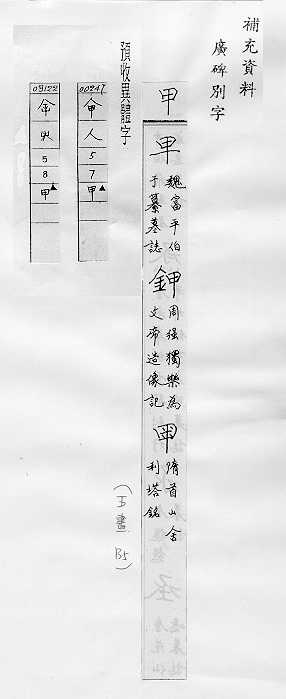 補充資料
廣碑別字
甲
魏富平伯
于纂墓誌
鉀
周强獨樂為
文帝造像記
隋首山舍
利塔銘
(五畫 B5)
預收異體字
00247
人
5
7
甲▲
03122
5
8
甲▲